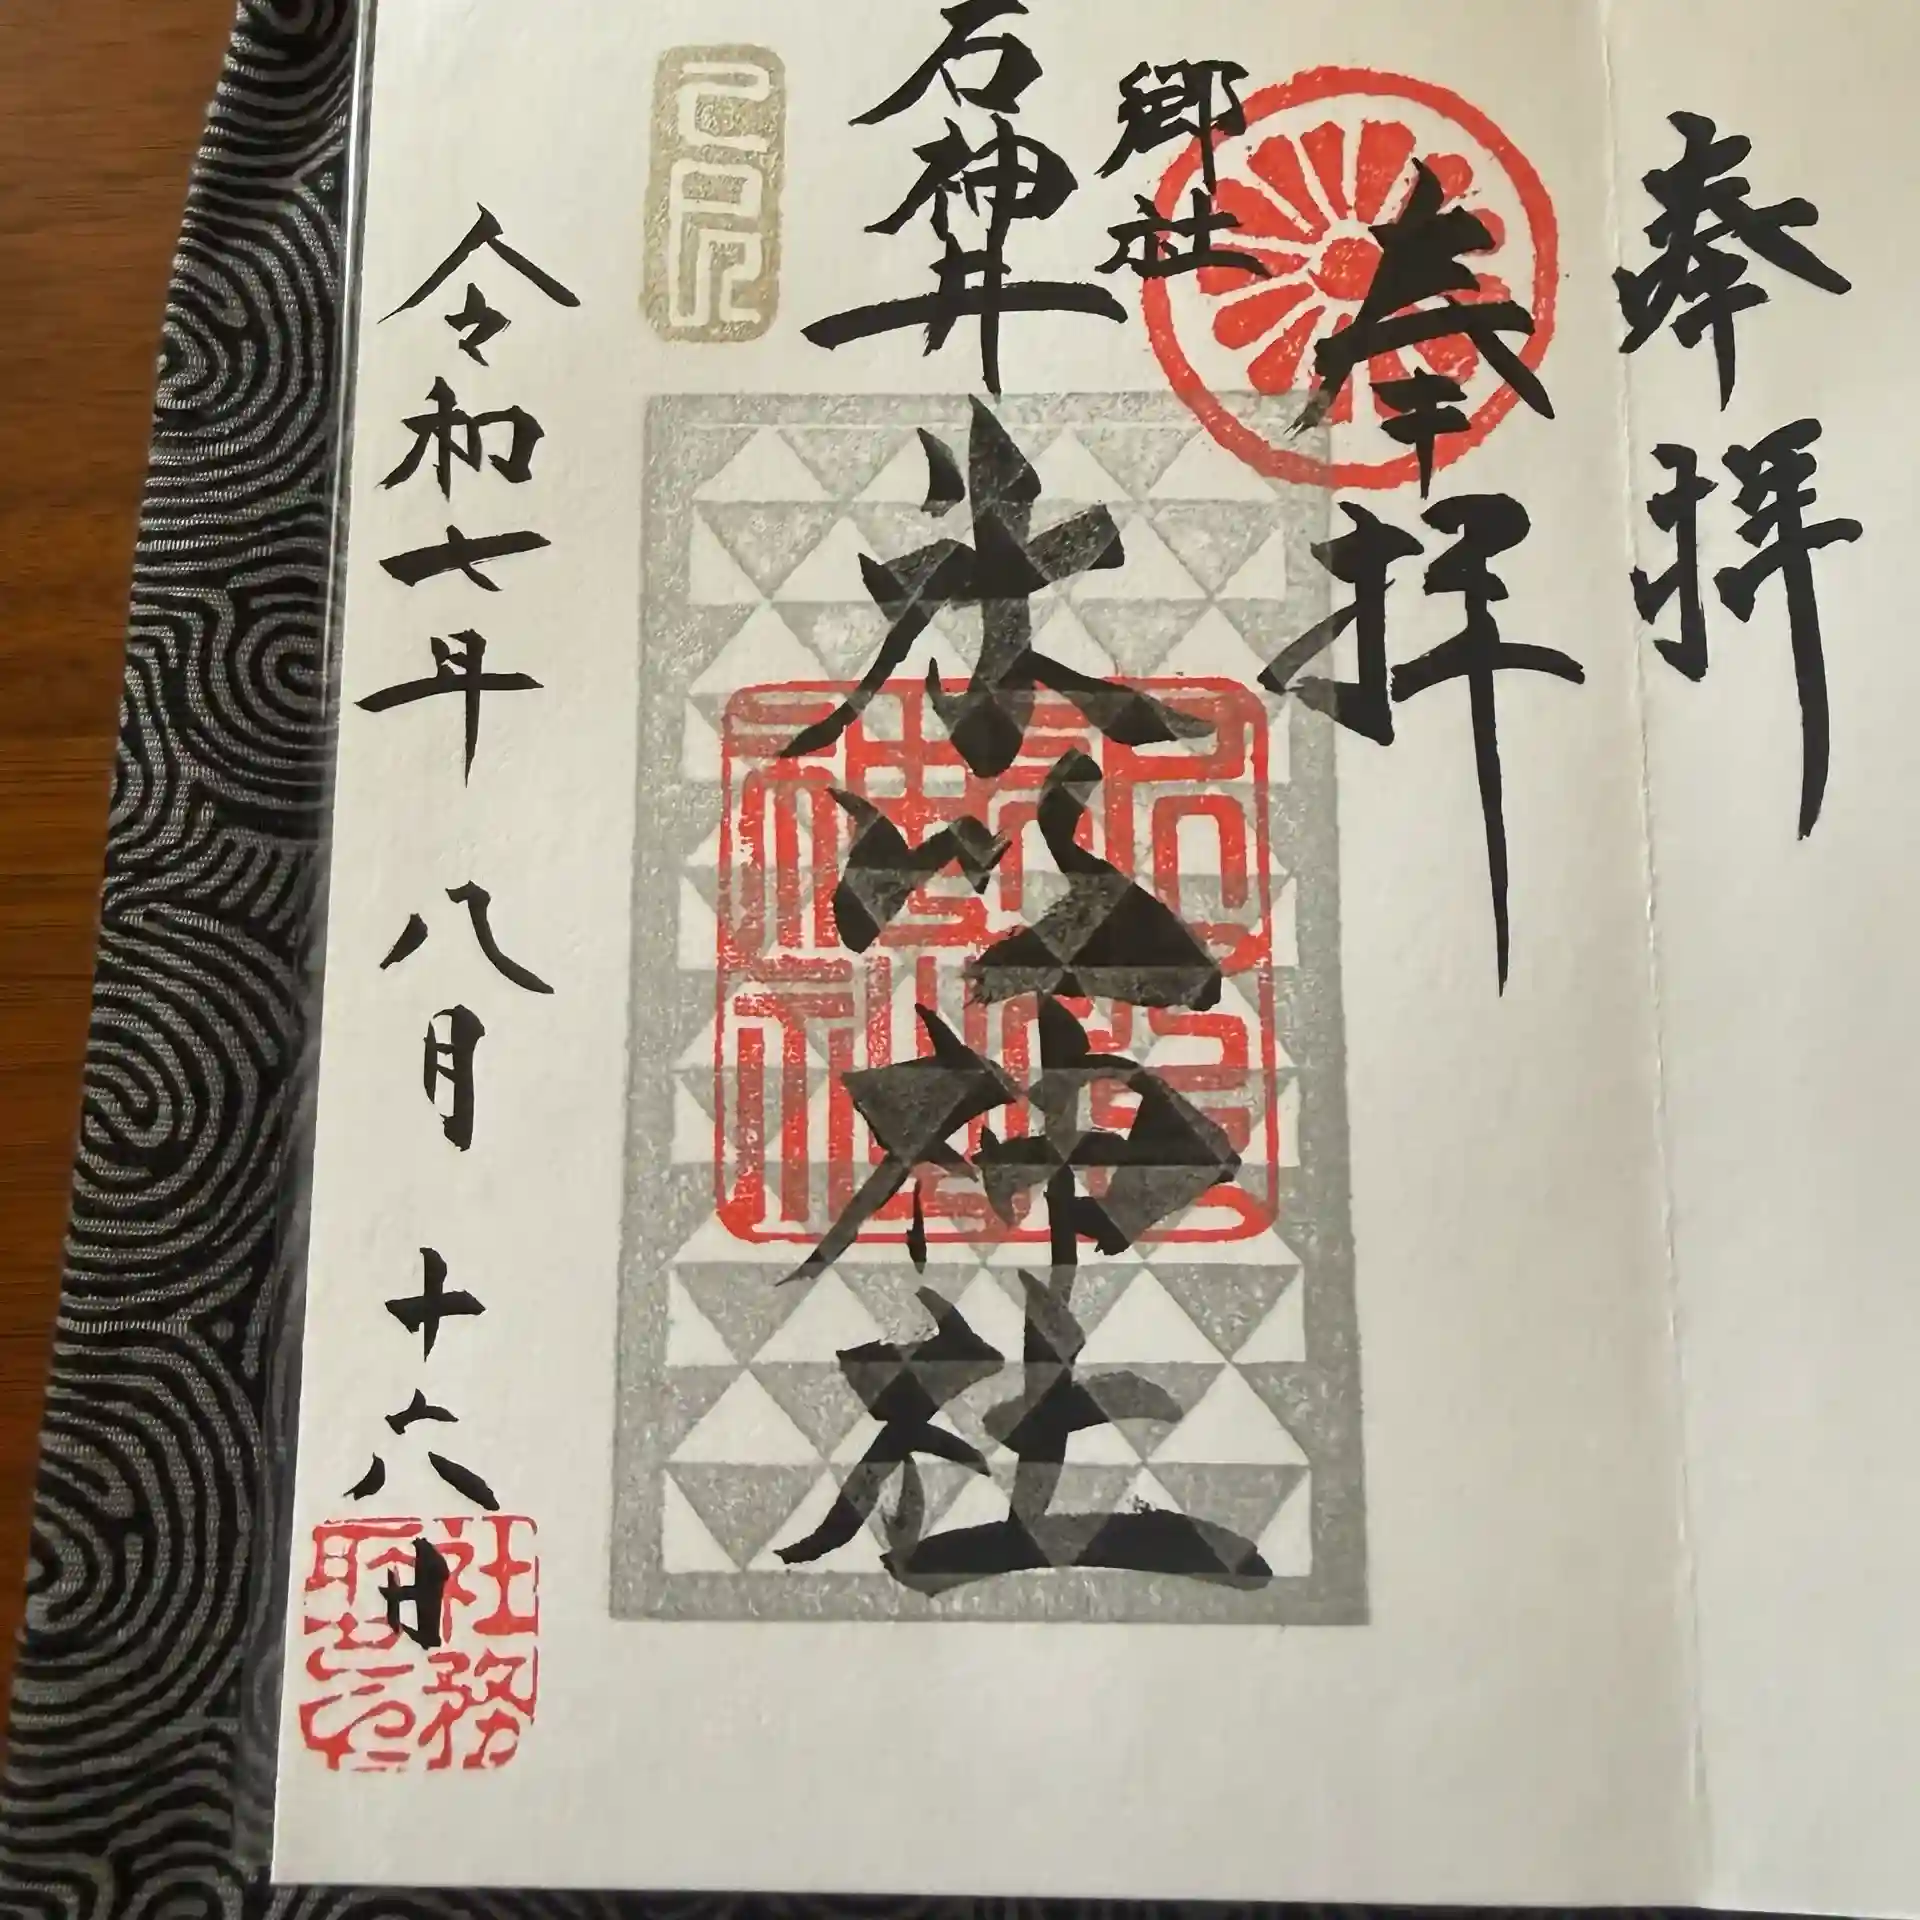 奉拝
奉拝
郷社
石神井
氷川神社
石神井氷川神社
己巳
令和七年八月十六日
社務所印